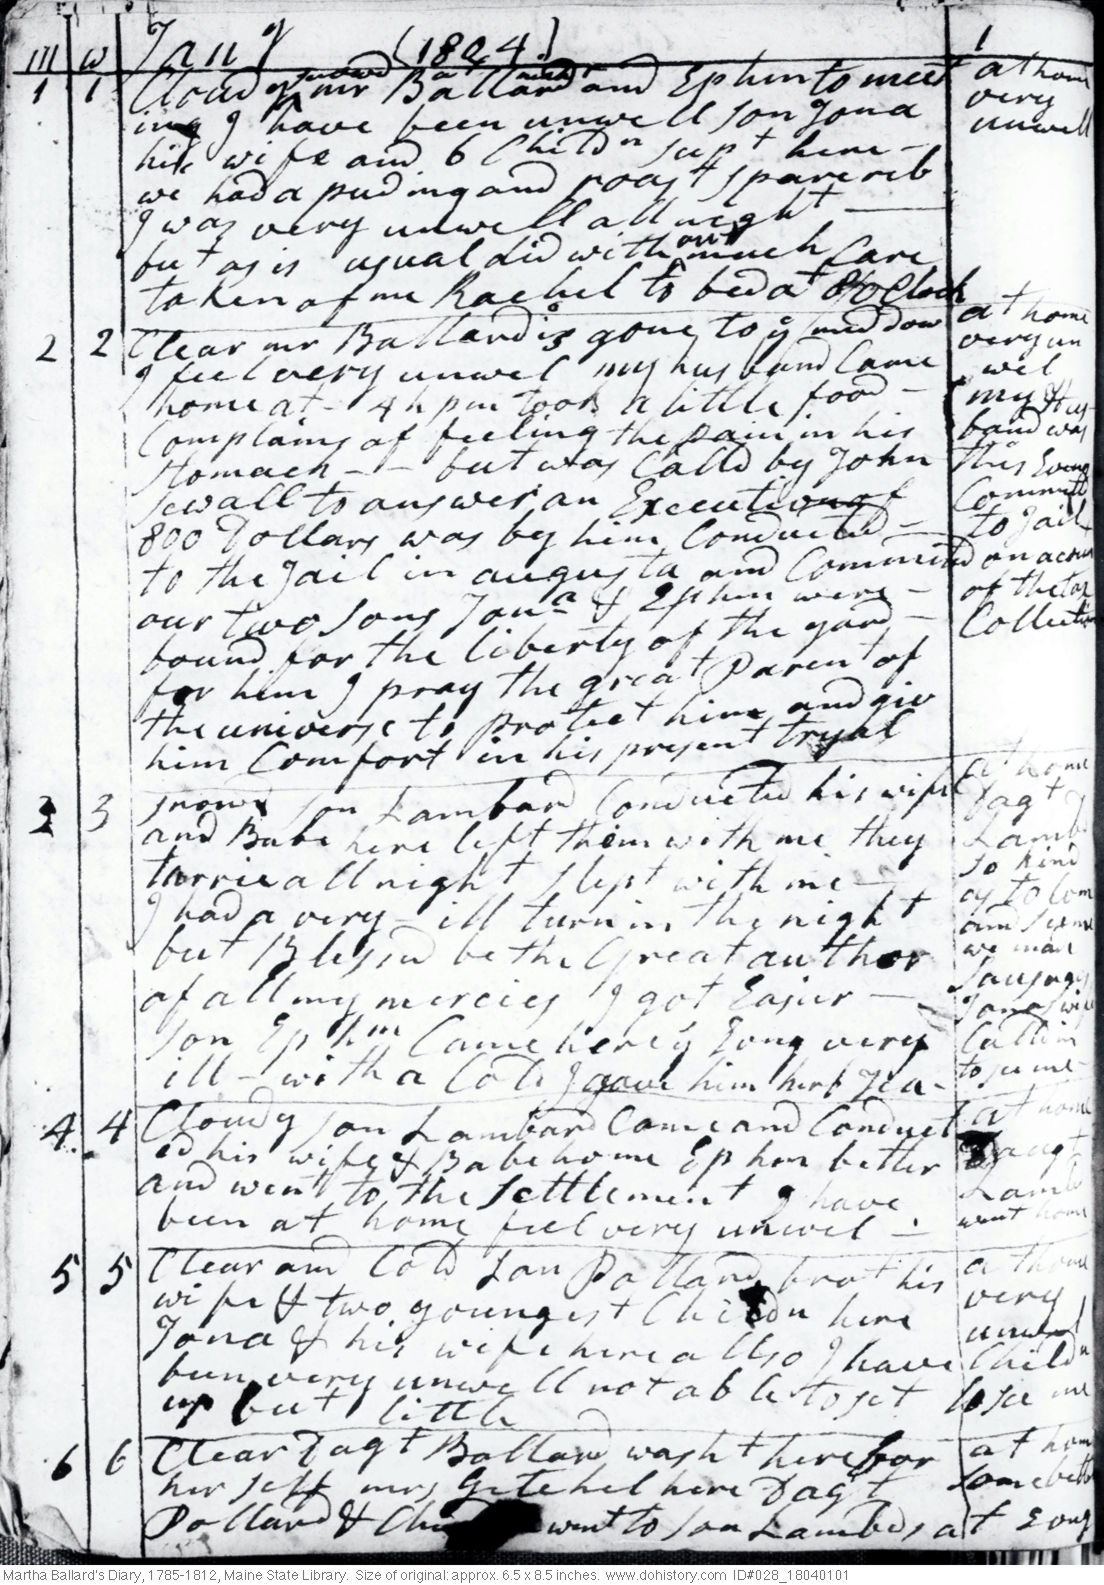 m w Jany (1804) 1
1 1 Cloudy & snowd mr Ballard and Ephm to meet
ing I have been unwell son Jona
his wife and 6 Childn supt here –
we had a puding and roast sparerib
I was very unwell all night
but as is usual did with out much Care
taken of me Rachel to bed at 8 O Clock
at home
very
unwell
2 2 Clear mr Ballard is gone to ye meddow
I feel very unwel my husband Came
home at – 4 h pm took a little food –
Complains of feeling the pain in his
stomach – – but was Calld by John
Sewall to answer an Execution of
800 Dollars was by him Conducted –
to the Jail in augusta and Committd
our two sons Jona & Ephm were –
bound for the liberty of the yard –
for him I pray the great Parent of
the universe to protect him and giv
him Comfort in his present tryal
at home
very un
wel
my Hus
band was
this Evng
Committ
to Jail
on acount
of the tax
Collection
3 3 snowd son Lambard Conducted his wife
and Babe here left them with me they
tarrie all night slept with me –
I had a very – ill turn in the night
but Blessd be the Great author
of all my mercies I got Easier –
son Ephm Came here ys Evng very
ill – with a Cold I gave him hert Tea –
at home
Dagt
Lamb
so kind
as to Com
and
we
sausages
Jonas wife
Calld in
to see me –
4 4 Cloudy son Lambard Came and Conduct
ed his wife & Babe home Ephm better
and went to the settlement I have
been at home feel very unwel –
at home
Dagt
Lamb
went home
5 5 Clear and Cold son Pollard brot his
wife & two youngest Childn here
Jona & his wife here allso I have
been very unwell not able to set
up but little
at home
very
unwel
Childn
to see me
6 6 Clear Dagt Ballard washt here for
her self mrs Getchel here Dagt
Pollard & went to son Lambds at Evng
at home
some better
Martha Ballard's Diary, 1785-1812, Maine State Library. Size of original: approx. 6.5 x 8.5 inches. www.dohistory.com ID#028_18040101